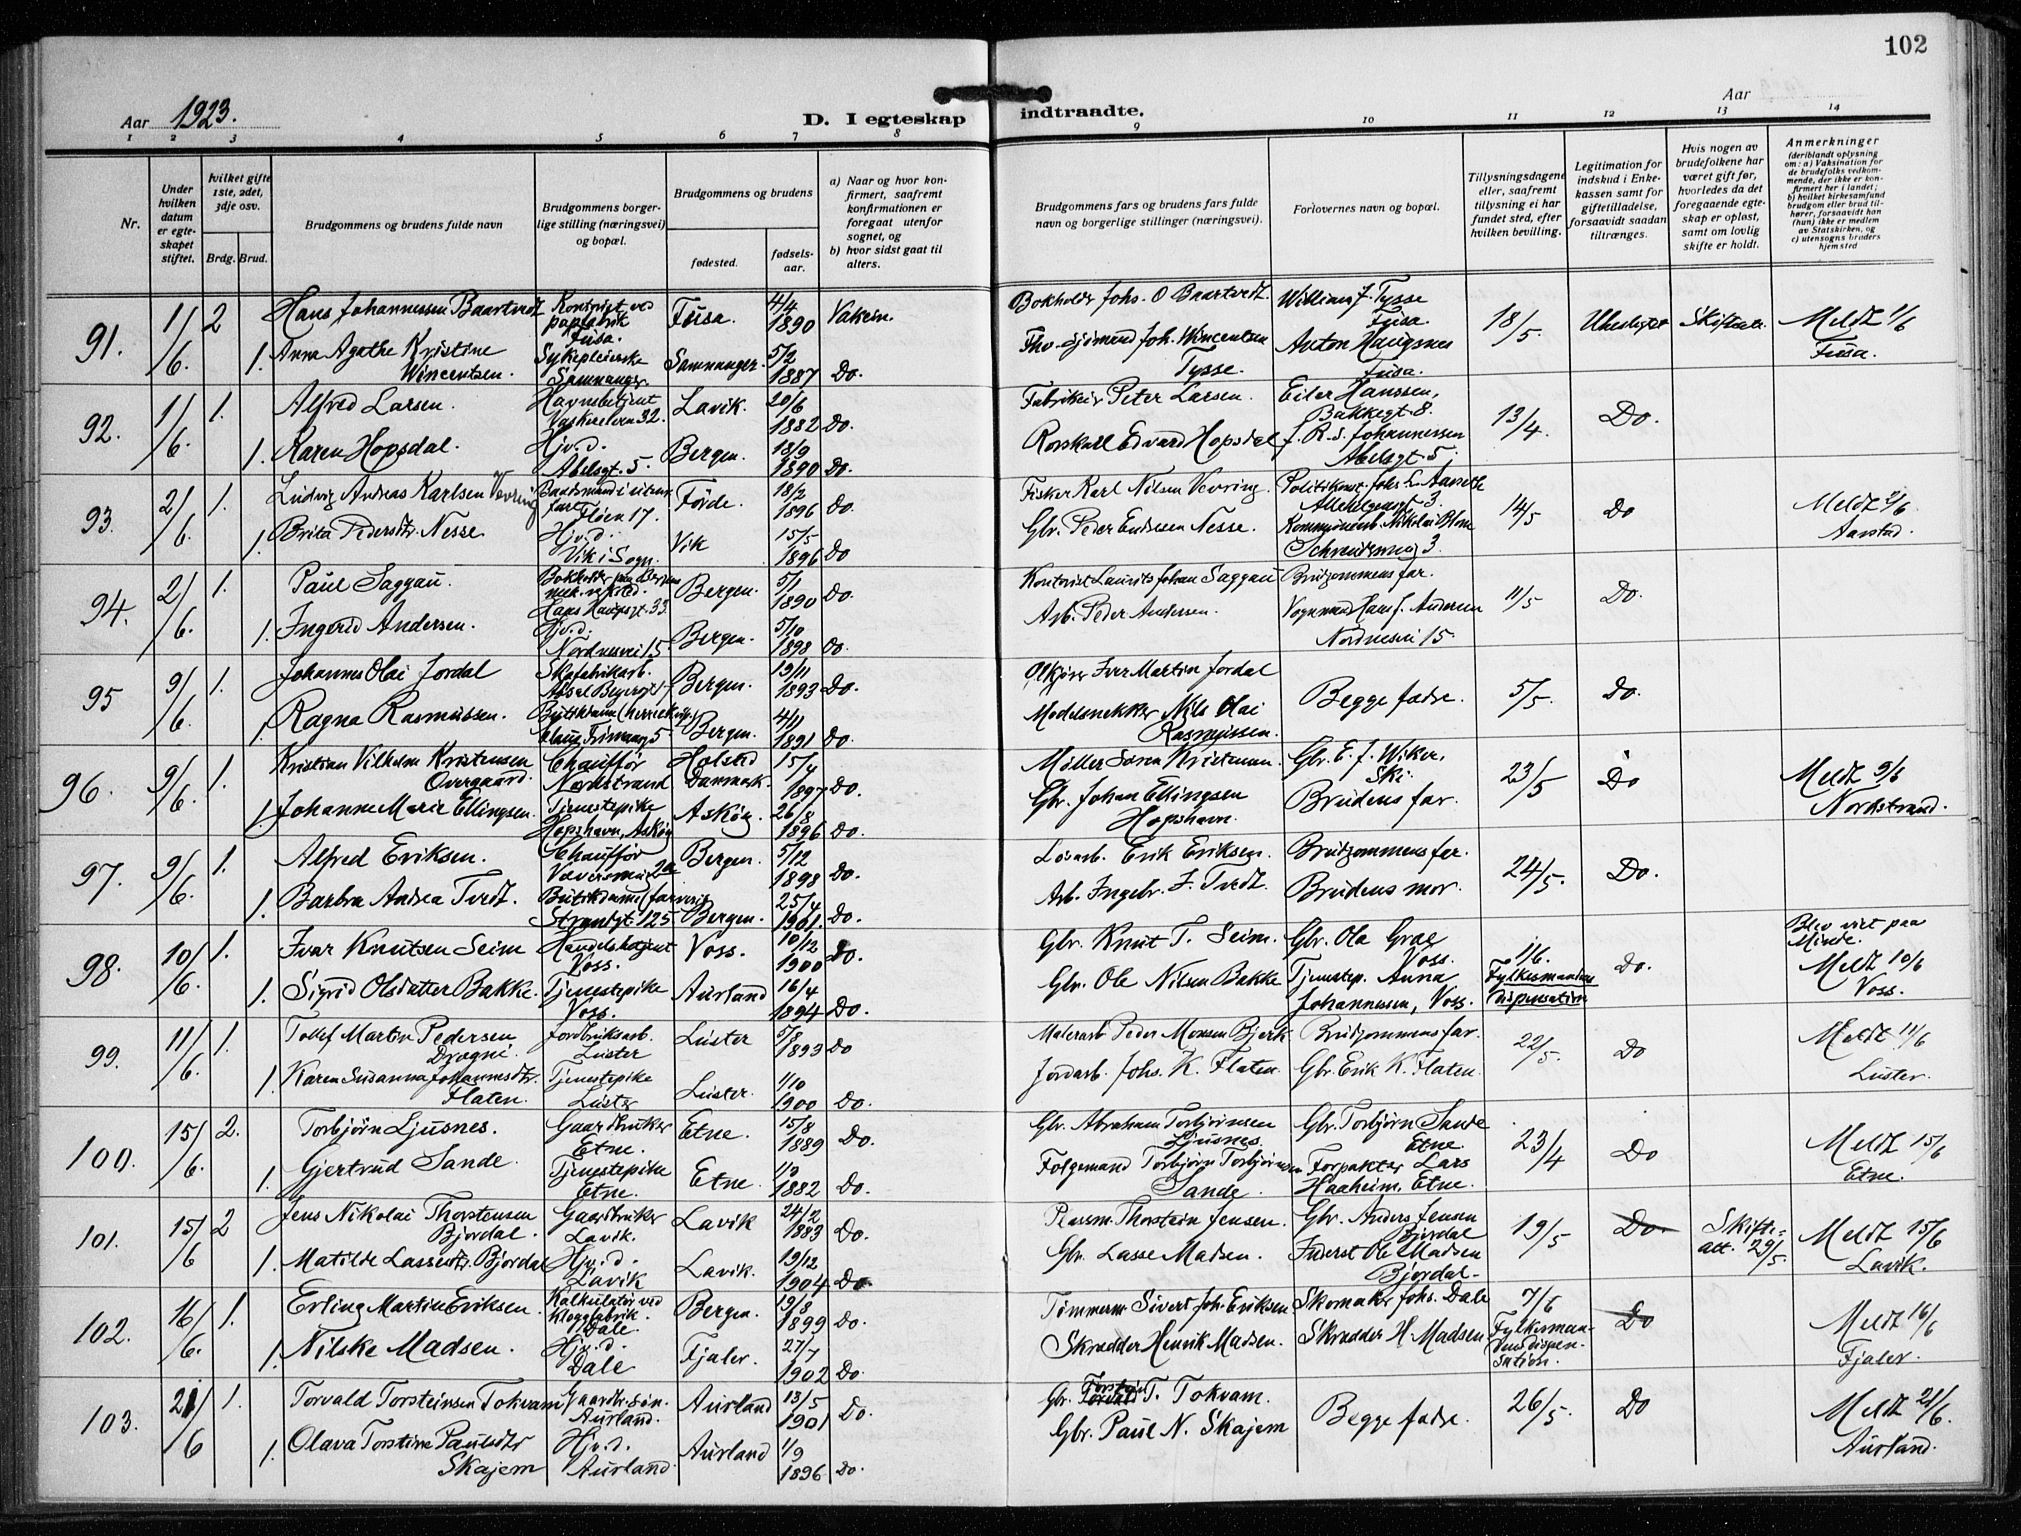 102
Aar 1923.
D. I egteskap indtraadte.
Aar
1 2 3 4 5 6 7 8 9 10 11 12 13 14
Nr.
Under hvilken datum er egteskapet stiftet.
hvilket gifte 1ste, 2det, 3dje osv.
Brdg. Brud.
Brudgommens og brudens fulde navn
Brudgommens borgerlige stilling (næringsvei) og bopæl.
Brudgommens og brudens
fødested.
fødselsaar.
a) Naar og hvor konfirmert, saafremt konfirmationen er foregaat utenfor sognet, og
b) hvor sidst gaat til alters.
Brudgommens fars og brudens fars fulde navn og borgerlige stillinger (næringsvei).
Forlovernes navn og bopæl.
Tillysningsdagene eller, saafremt tillysning ei har fundet sted, efter hvilken bevilling.
Legitimation for indskud i Enkekassen samt for giftetilladelse, forsaavidt saadan tiltrænges.
Hvis nogen av brudefolkene har været gift før, hvorledes da det foregaaende egteskap er opløst, samt om lovlig skifte er holdt.
Anmerkninger
(deriblandt oplysning om: a) Vaksination for de brudefolks vedkommende, der ikke er konfirmert her i landet; b) hvilket kirkesamfund brudgom eller brud tilhører, forsaavidt han (hun) ikke er medlem av Statskirken, og c) utensogns bruders hjemsted
91. 1/6. 2 Hans Johannessen Baartvedt Kontorist ved papfabrik Fusa. Fusa. 4/4 1890 Vaksin. Bokholder Johs. O Baartvedt. William J. Tysse Fusa. 18/5. Ubesluttet Skifteatt. Meldt 1/6 Fusa.
1. Anna Agathe Kristine Wincentsen. Sykepleierske Samnanger Samnanger. 5/2 1887 Do. Fhv. Sjömand Joh. Wincentsen Tysse. Anton Haugsnes Fusa.
92. 1/6. 1. Alfred Larsen. Havnebetjent Vaskerelven 32. Lavik. 20/6 1882 Do. Fabrikeier Peter Larsen. Eiler Hanssen, Bakkegt. 8. 13/4. Do.
1. Karen Hopsdal. Hjv.d. Abelsgt. 5. Bergen. 18/9 1890 Do. Rorskarl Edvard Hopsdal J. R. S. Johannessen Abelsgt 5.
93. 2/6. 1. Ludvig Andreas Karlsen Vevring Baadsmand i utenr. fart Fløen 17. Førde. 18/2 1896 Do. Fisker Karl Nilsen Vevring. 14/5 Do Meldt 2/6 Aarstad.
1. Brita Pedersdtr. Nesse. Hjv.d. Vik i Sogn. Vik 15/5 1896 Do Gbr. Peder Endresen Nesse.
94. 2/6. 1. Paul Saggau. Bokholder paa Bergens mek. verksted. Hans Haugesgt. 33. Bergen. 5/1 1890 Do. Kontorist Laurits Johan Saggau Brudgommens far. 11/5 Do.
1. Ingerid Andersen. Hjv.d. Nordnesvei 15 Bergen. 5/10 1898 Do. Arb. Peder Andersen. Vognmand Hans J. Andersen Nordnesvei 15.
95 9/6. 1. Johannes Olai Jordal Skofabrikarb. Absal. Beyersgt. 1. Bergen. 19/11 1893 Do. Olkjörer Iver Martin Jordal Begge fædre. 5/5. Do.
1. Ragna Rasmussen. Butikdame Bergen. 4/11 1891 Do. Modelsnekker Nils Olai Rasmussen.
96. 9/6. 1. Kristian Vilhelm Kristensen Overgaard. Chauffør Nordstrand Holsted Danmark 15/4 1897 Do. Møller Søren Kristensen. Gbr. E. J. Wiker, Ski. 23/5 Do Meldt 9/6 Nordstrand.
1. Johanne Marie Ellingsen. Tjenestepike Hopshavn, Askøy Askøy. 26/8 1896 Do. Gbr. Johan Ellingsen Hopshavn. Brudens far.
97. 9/6. 1. Alfred Eriksen. Chauffør Væversmu 2a Bergen. 5/12 1898 Do. Løsarb. Erik Eriksen. Brudgommens far. 24/5. Do.
1. Barbra Andrea Tvedt. Butikdame Strandgt. 125 Bergen. 25/4 1901. Do. Arb. Ingebr. J. Tvedt. Brudens mor.
98. 10/6. 1. Ivar Knutsen Seim Handelsbetjent Voss. Voss. 10/12 1900 Do. Gbr. Knut T. Seim. Gbr. Ola Grae Voss. 1/6. Fylkesmandens Dispensation Do. Blev viet paa Minde. Meldt 10/6 Voss.
1. Sigrid Olsdatter Bakke. Tjenestepike Voss. Aurland 16/4 1894 Do. Gbr. Ole Nilsen Bakke Tjenestep. Anna Johannessen, Voss.
99. 11/6. 1. Tollef Martin Pedersen Drægni. Jordbruksarb. Luster Luster 5/8 1893 Do Malerarb Peder Monsen Bjerk Brudgommens far. 22/5. Do Meldt 11/6 Luster.
1. Karen Susanna Johannesdtr. Flaten. Tjenestepike Luster Luster. 1/10 1900 Do. Jordarb. Johs. K. Flaten. Gbr. Erik K. Flaten.
100. 15/6. 2. Torbjørn Ljusnes. Gaardbruker Etne. Etne. 15/8 1889 Do. Gbr. Abraham Torbjørnsen Ljusnes. Gbr. Torbjørn Sande Etne. 23/4 Do Meldt 15/6 Etne.
1. Gjertrud Sande. Tjenestepike Etne. Etne. 1/3 1882 Do. Folgemand Torbjørn Torbjørnsen Sande. Forpakter Lars Haaheim, Etne.
101. 15/6 2 Jens Nikolai Thorstensen Bjordal. Gaardbruker Lavik. Lavik 24/2 1883 Do. Plassm. Thorstein Jensen. Gbr. Anders Jensen Bjordal 19/5 Do. Skifteatt. 29/5. Meldt 15/6 Lavik.
1. Matilde Lassesdtr. Bjordal Hjv.d. Lavik Lavik. 19/12 1904 Do. Gbr. Lasse Madsen. Inderst Ole Madsen Bjordal.
102. 16/6. 1. Erling Martin Eriksen. Kalkulatør ved Kloggfabrik. Dale. Bergen. 19/8 1899 Do. Tømmerm. Sivert Joh. Eriksen Skomaker Johs. Dale 7/6 Fylkesmandens dispensation. Do Meldt 16/6 Fjaler.
1. Nilske Madsen. Hjv.d. Dale Fjaler. 27/7 1902 Do. Skrædder Henrik Madsen. Skrædder H. Madsen
103. 21/6 1. Torvald Torsteinsen Tokvam Gaardbr. søn. Aurland. Aurland 13/5 1901 Do. Gbr. Torstein T. Tokvam. Begge fædre. 26/5. Do Meldt 21/6. Aurland.
1. Olava Torstine Paulsdtr Skajem Hjv.d. Aurland. Aurland 1/9 1896 Do. Gbr. Paul N. Skajem